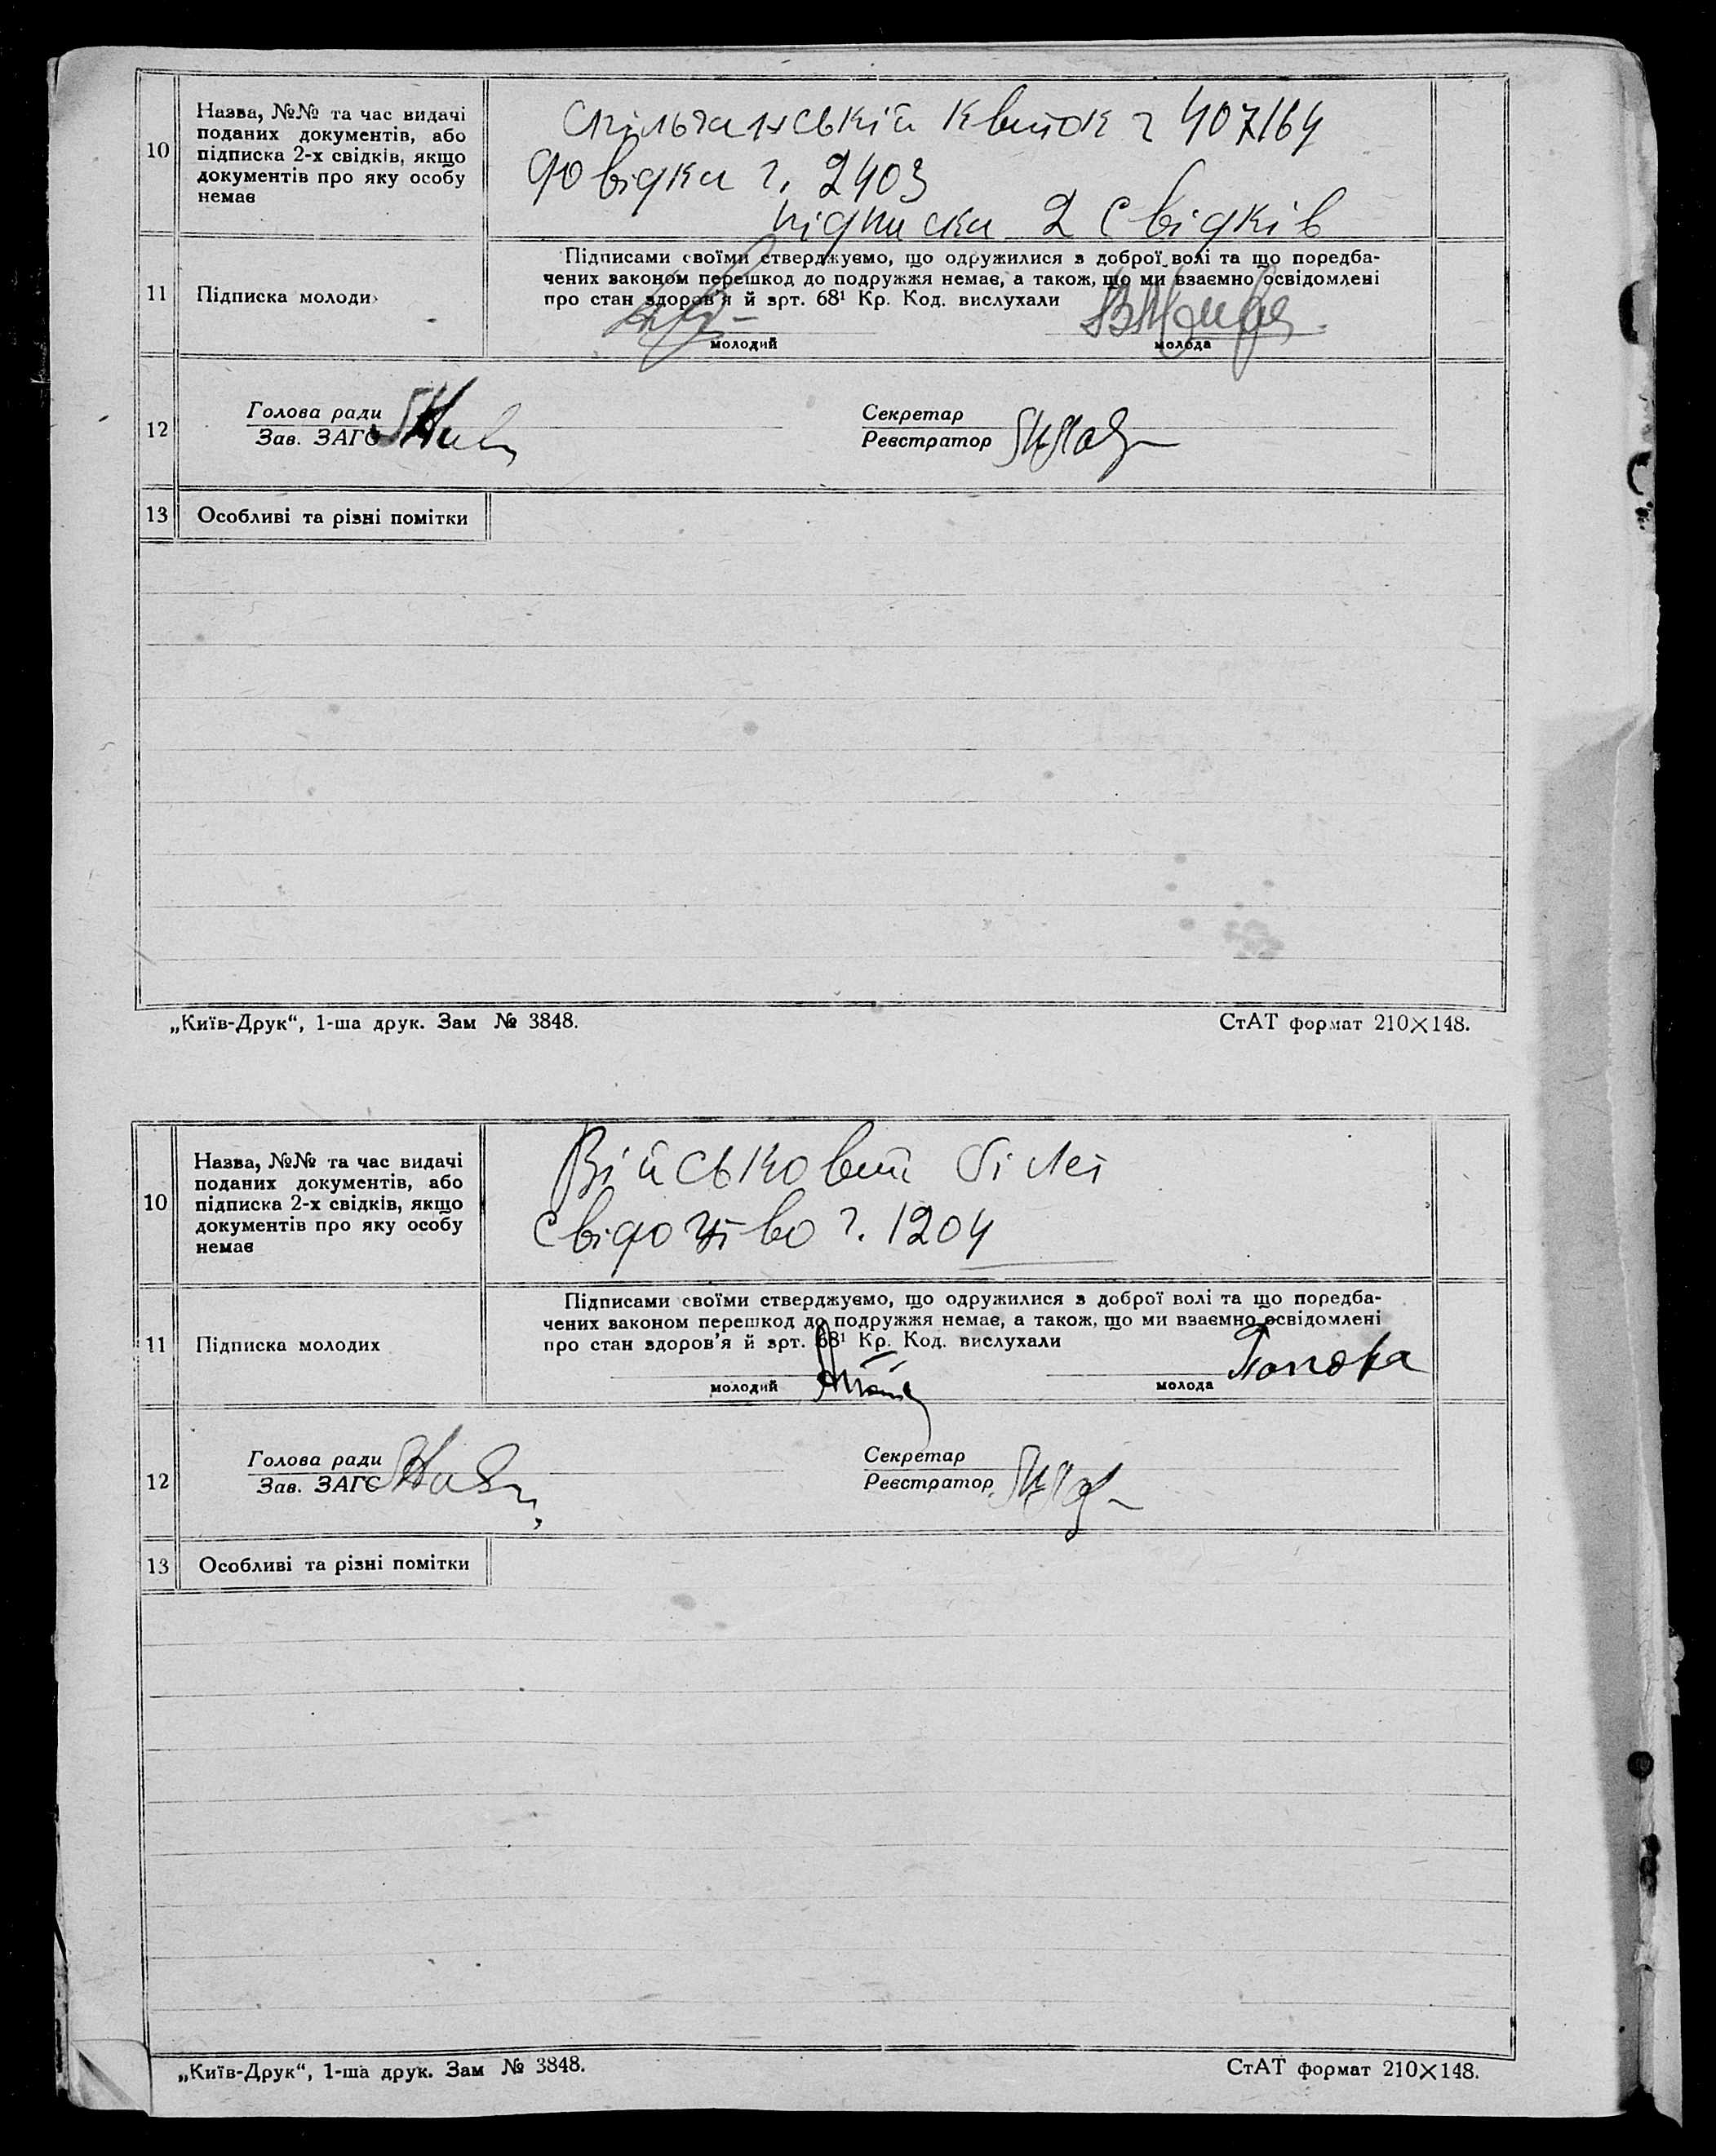 10
Назва, №№ та час видачі
поданих документів, або
підписка 2-х свідків, якщо
документів про яку особу
немає
Спільчанський квиток г 407164
Довідка г. 2403
підписка 2 свідків
11
Підписка молоди
Підписами своїми стверджуємо, що одружилися з доброї волі та що поредба-
чених законом перешкод до подружжя немає, а також, що ми взаємно освідомлені
про стан здоров'я й зрт. 68¹ Кр. Код. вислухали
молодий
молода
12
Голова ради
Зав. ЗАГС
Секретар
Реєстратор
13
Особливі та різні помітки
„Київ-Друк“, 1-ша друк. Зам № 3848.
СтАТ формат 210×148.
10
Назва, №№ та час видачі
поданих документів, або
підписка 2-х свідків, якщо
документів про яку особу
немає
Військовий білет
Свідоцтво г. 1204
11
Підписка молодих
Підписами своїми стверджуємо, що одружилися з доброї волі та що поредба-
чених законом перешкод до подружжя немає, а також, що ми взаємно освідомлені
про стан здоров'я й зрт. 68¹ Кр. Код. вислухали
молодий
молода
12
Голова ради
Зав. ЗАГС
Секретар
Реєстратор
13
Особливі та різні помітки
„Київ-Друк“, 1-ша друк. Зам № 3848.
СтАТ формат 210×148.